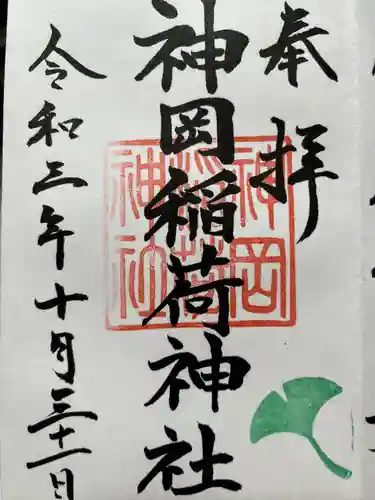 奉拝
神岡稲荷神社
令和三年十月三十一日
神岡
稲荷
神社